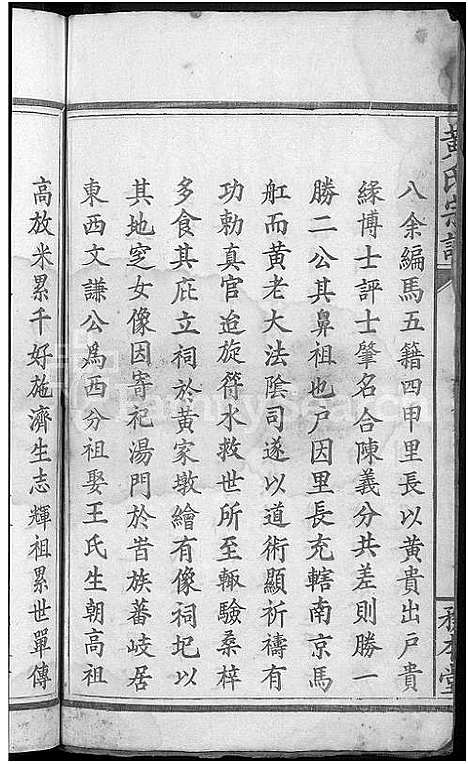 黃氏宗譜
八余編馬五籍四甲里長以黃貴出戶貴
緣博士評士肇名合陳義分共差則勝一
勝二公其鼻祖也戶因里長充轄南京馬
舡而黃老大法陰司遂以道術顯祈禱有
功勅真官迨旋符水救世所至輒驗桑梓
多食其庇立祠於黃家墩繪有像祠圮以
其地窆女像因寄祀湯門於昔族蕃岐居
東西文謙公為西分祖娶王氏生朝高祖
高放米累千好施濟生志輝祖累世單傳